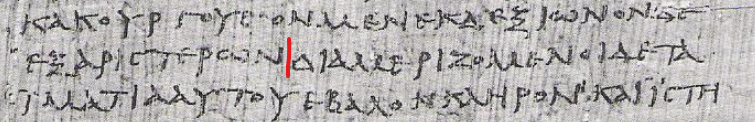 ΚΑΚΟΥΡΓΟΥΣΟΝΜΕΝΕΚΔΕΞΙΩΝΟΝΔΕ
ΕΞΑΡΙΣΤΕΡΩΝΔΙΑΜΕΡΙΖΟΜΕΝΟΙΔΕΤΑ
ΙΜΑΤΙΑΑΥΤΟΥΕΒΑΛΟΝΚΛΗΡΟΝ·ΚΑΙΙΣΤΗ